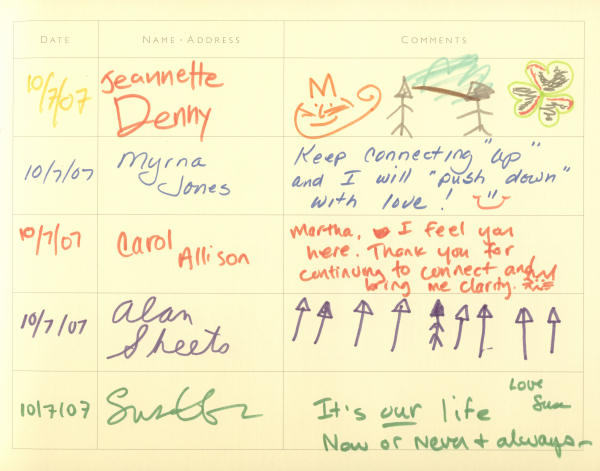 DATE NAME · ADDRESS COMMENTS
10/7/07 Jeannette
Denny
10/7/07 Myrna
Jones
Keep connecting "up"
and I will "push down"
with love!
10/7/07 Carol
Allison
Martha, I feel you
here. Thank you for
continuing to connect and
bring me clarity.
10/7/07 Alan
Sheets
10/7/07
It's our life
Now or Never + always
Love